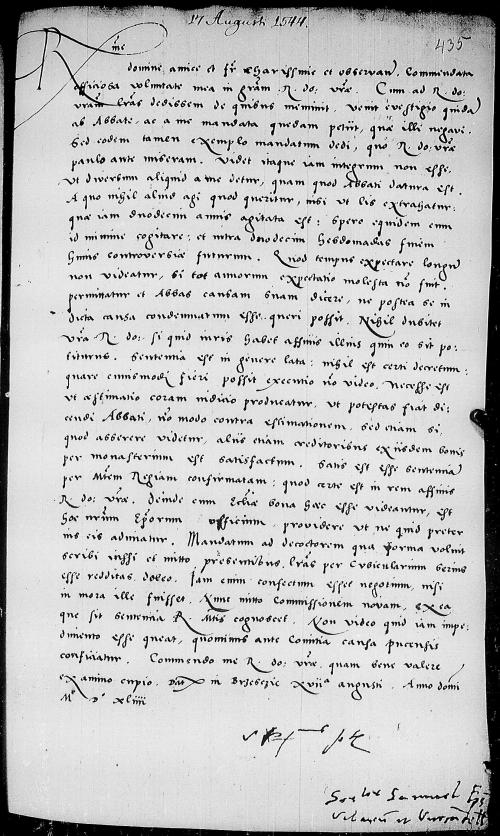 17 Augusti 1544.
435
R me
domine, amice et fr charissime et observan. Commendata
officiosa voluntate mea in gram R. do: vrae. Cum ad R. do:
vram lras dedissem de quibus meminit, venit evestigio quida
ab Abbate, ac a me mandata quedam petiit, quae illi negavi.
Sed eodem tamen exemplo mandatum dedi, quo R. do: vrae
paulo ante miseram. Videt itaque iam integrum non esse,
ut diversum aliquid a me detur, quam quod Abbati datum est.
A quo nihil aliud agi quod queritur, nisi ut lis extrahatur:
quae iam duodecim annis agitata est: spero equidem eum
id minime cogitare: et intra duodecim hebdomadas finem
huius controversiae futurum. Quod tempus expectare longu
non videatur, si tot annorum expectatio molesta no fuit.
permittatur et Abbas causam suam dicere, ne postea se in
dicta causa condemnatum esse queri possit. Nihil dubitet
vra R. do: si quid iuris habet affinis illius quin eo sit po-
titurus. Sententia est in genere lata: nihil est certi decretum:
quare eiusmodi fieri possit executio no video. Necesse est
ut estimatio coram iudicio producatur, ut potestas fiat di-
cendi Abbati, no modo contra estimationem, sed etiam si
quod asserere videtur, aliis etiam creditoribus ex iisdem bonis
per monasterium est satisfactum. Satis est esse sententia
per Mtem Regiam confirmatam: quod certe est in rem affinis
R. do: vrae. Deinde cum Ecclie bona haec esse videantur, est
hoc nrum Eporum officium, providere ut ne quid preter
ius eis adimatur. Mandatum ad decoctorem qua forma voluit
scribi iussi et mitto presentibus. lras per Cubicularium serius
esse redditas, doleo. Iam enim confectum esset negotium, nisi
in mora ille fuisset. Nunc mitto Commissionem novam, ex ea
que sit sententia R. Mtis cognoscet. Non video quid iam impe-
dimento esse queat, quominus ante Comitia causa
conficiatur. Commendo me R. do: vrae, quam bene valere
ex animo cupio. Dat in Brzeszie xvii augusti. Anno domi
M D xliiii
Samuel Eps